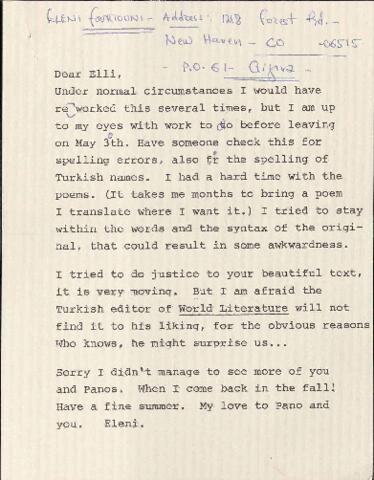 ELENI FOURTOUNI - Address: 1218 Forest Rd. -
New Haven - CO - 06515
- P.O. 61 - Aigina -
Dear Elli,
Under normal circumstances I would have
reworked this several times, but I am up
to my eyes with work to do before leaving
on May 30th. Have someone check this for
spelling errors, also fr the spelling of
Turkish names. I had a hard time with the
poems. (It takes me months to bring a poem
I translate where I want it.) I tried to stay
within the words and the syntax of the origi-
nal, that could result in some awkwardness.
I tried to do justice to your beautiful text,
it is very moving. But I am afraid the
Turkish editor of World Literature will not
find it to his liking, for the obvious reasons
Who knows, he might surprise us...
Sorry I didn't manage to see more of you
and Panos. When I come back in the fall!
Have a fine summer. My love to Pano and
you. Eleni.